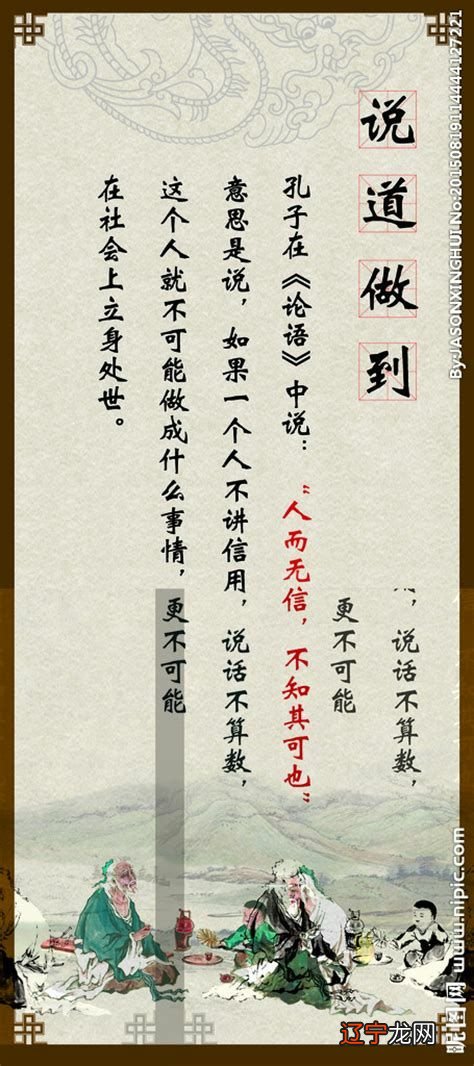 说道做到
孔子在《论语》中说：“人而无信，不知其可也”
意思是说，如果一个人不讲信用，说话不算数，
这个人就不可能做成什么事情，更不可能
在社会上立身处世。
说话不算数，
更不可能
By:JASONXINGHUI No:20150819114444127221
昵图网 www.nipic.com
辽宁龙网